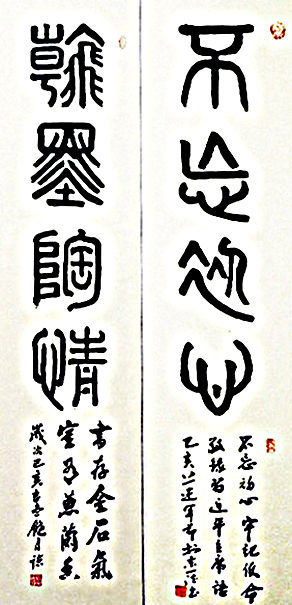 不忘初心
不忘初心牢記使命
敬録習近平主席語
己亥
翰墨陶情
書存金石氣
室有蕙蘭香
歲次己亥